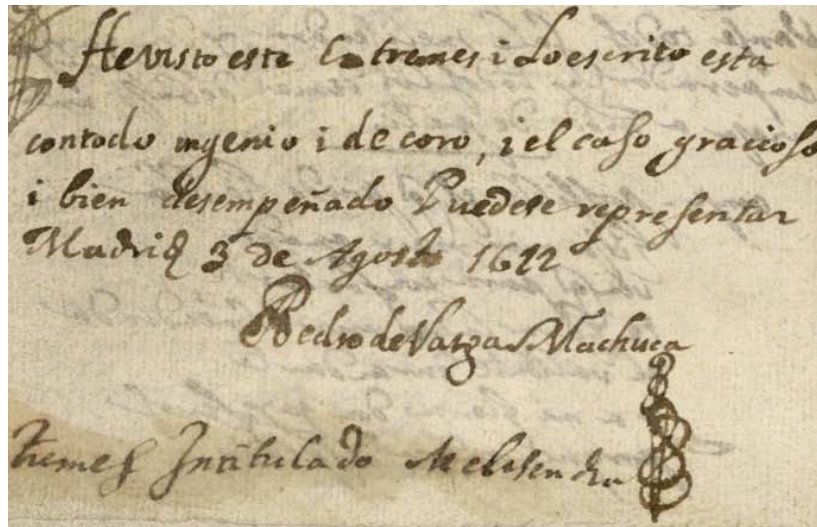 He visto este Entremes i Lo escrito esta
con todo ingenio i decoro, i el caso gracioso
i bien desempeñado Puedese representar
Madrid 3 de Agosto 1622
Pedro de Vargas Machuca
tremes Intitulado Melisendra